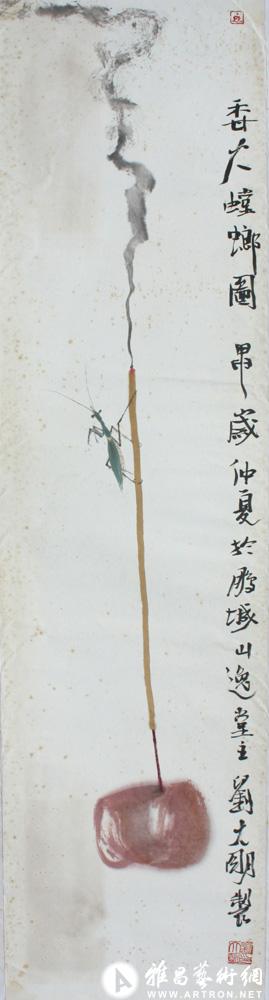 香火螳螂圖 甲歲仲夏於鵬城山逸堂主劉大明製
雅昌藝術網
WWW.ARTRON.NET